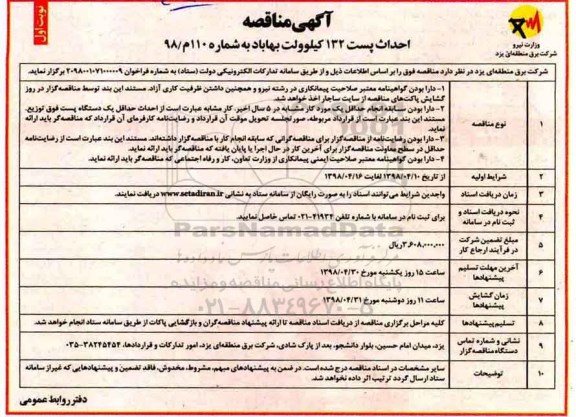 نوبت اول
آگهی مناقصه
احداث پست ۱۳۲ کیلوولت بهاباد به شماره ۱۱۰م/۹۸
وزارت نیرو
شرکت برق منطقه‌ای یزد
شرکت برق منطقه‌ای یزد در نظر دارد مناقصه فوق را بر اساس اطلاعات ذیل و از طریق سامانه تدارکات الکترونیکی دولت (ستاد) به شماره فراخوان ۲۰۹۸۰۰۱۰۷۱۰۰۰۰۰۹ برگزار نماید.
۱
نوع مناقصه
۱- دارا بودن گواهینامه معتبر صلاحیت پیمانکاری در رشته نیرو و همچنین داشتن ظرفیت کاری آزاد. مستند این بند توسط مناقصه‌گزار در روز
گشایش پاکت‌های مناقصه از سایت ساجار اخذ خواهد شد.
۲- دارا بودن سابقه انجام حداقل یک مورد کار مشابه در ۵ سال اخیر. کار مشابه عبارت است از احداث حداقل یک دستگاه پست فوق توزیع.
مستند این بند عبارت است از قرارداد مربوطه، صورتجلسه تحویل موقت آن قرارداد و رضایت‌نامه کارفرمای آن قرارداد که مناقصه‌گر باید ارائه
نماید.
۳- دارا بودن رضایت‌نامه از مناقصه‌گزار برای مناقصه‌گرانی که سابقه انجام کار با مناقصه‌گزار داشته‌اند. مستند این بند عبارت است از رضایت‌نامه
حداقل در سطح معاونت مناقصه‌گزار برای آخرین کار در حال اجرا یا پایان یافته که مناقصه‌گر باید ارائه نماید.
۴- دارا بودن گواهینامه معتبر صلاحیت ایمنی پیمانکاری از وزارت تعاون، کار و رفاه اجتماعی که مناقصه‌گر باید ارائه نماید.
۲
شرایط اولیه
از تاریخ ۱۳۹۸/۰۴/۱۰ لغایت ۱۳۹۸/۰۴/۱۶
۳
زمان دریافت اسناد
واجدین شرایط می‌توانند اسناد را به صورت رایگان از سامانه ستاد به نشانی www.setadiran.ir دریافت نمایند.
۴
نحوه دریافت اسناد و
ثبت نام در سامانه
برای ثبت نام در سامانه با شماره تلفن ۴۱۹۳۴-۰۲۱ تماس حاصل نمایید.
۵
مبلغ تضمین شرکت
در فرآیند ارجاع کار
۳,۶۰۸,۰۰۰,۰۰۰ ریال
۶
آخرین مهلت تسلیم
پیشنهادها
ساعت ۱۵ روز یکشنبه مورخ ۱۳۹۸/۰۴/۳۰
۷
زمان گشایش
پیشنهادها
ساعت ۱۱ روز دوشنبه مورخ ۱۳۹۸/۰۴/۳۱
۸
تسلیم پیشنهادها
کلیه مراحل برگزاری مناقصه از دریافت اسناد مناقصه تا ارائه پیشنهاد مناقصه‌گران و بازگشایی پاکات از طریق سامانه ستاد انجام خواهد شد.
۹
نشانی و شماره تماس
دستگاه مناقصه‌گزار
یزد، میدان امام حسین، بلوار دانشجو، بعد از پارک شادی، شرکت برق منطقه‌ای یزد، امور تدارکات و قراردادها، ۳۸۲۴۵۴۵۴-۰۳۵
۱۰
توضیحات
سایر مشخصات در اسناد مناقصه درج شده است. در ضمن به پیشنهادهای مبهم، مشروط، مخدوش، فاقد تضمین و پیشنهادهایی که غیر از سامانه
ستاد ارسال گردد ترتیب اثر داده نخواهد شد.
دفتر روابط عمومی
ParsNamadData
پایگاه اطلاع رسانی مناقصه و مزایده
۰۲۱-۸۸۳۴۹۶۷۰-۵